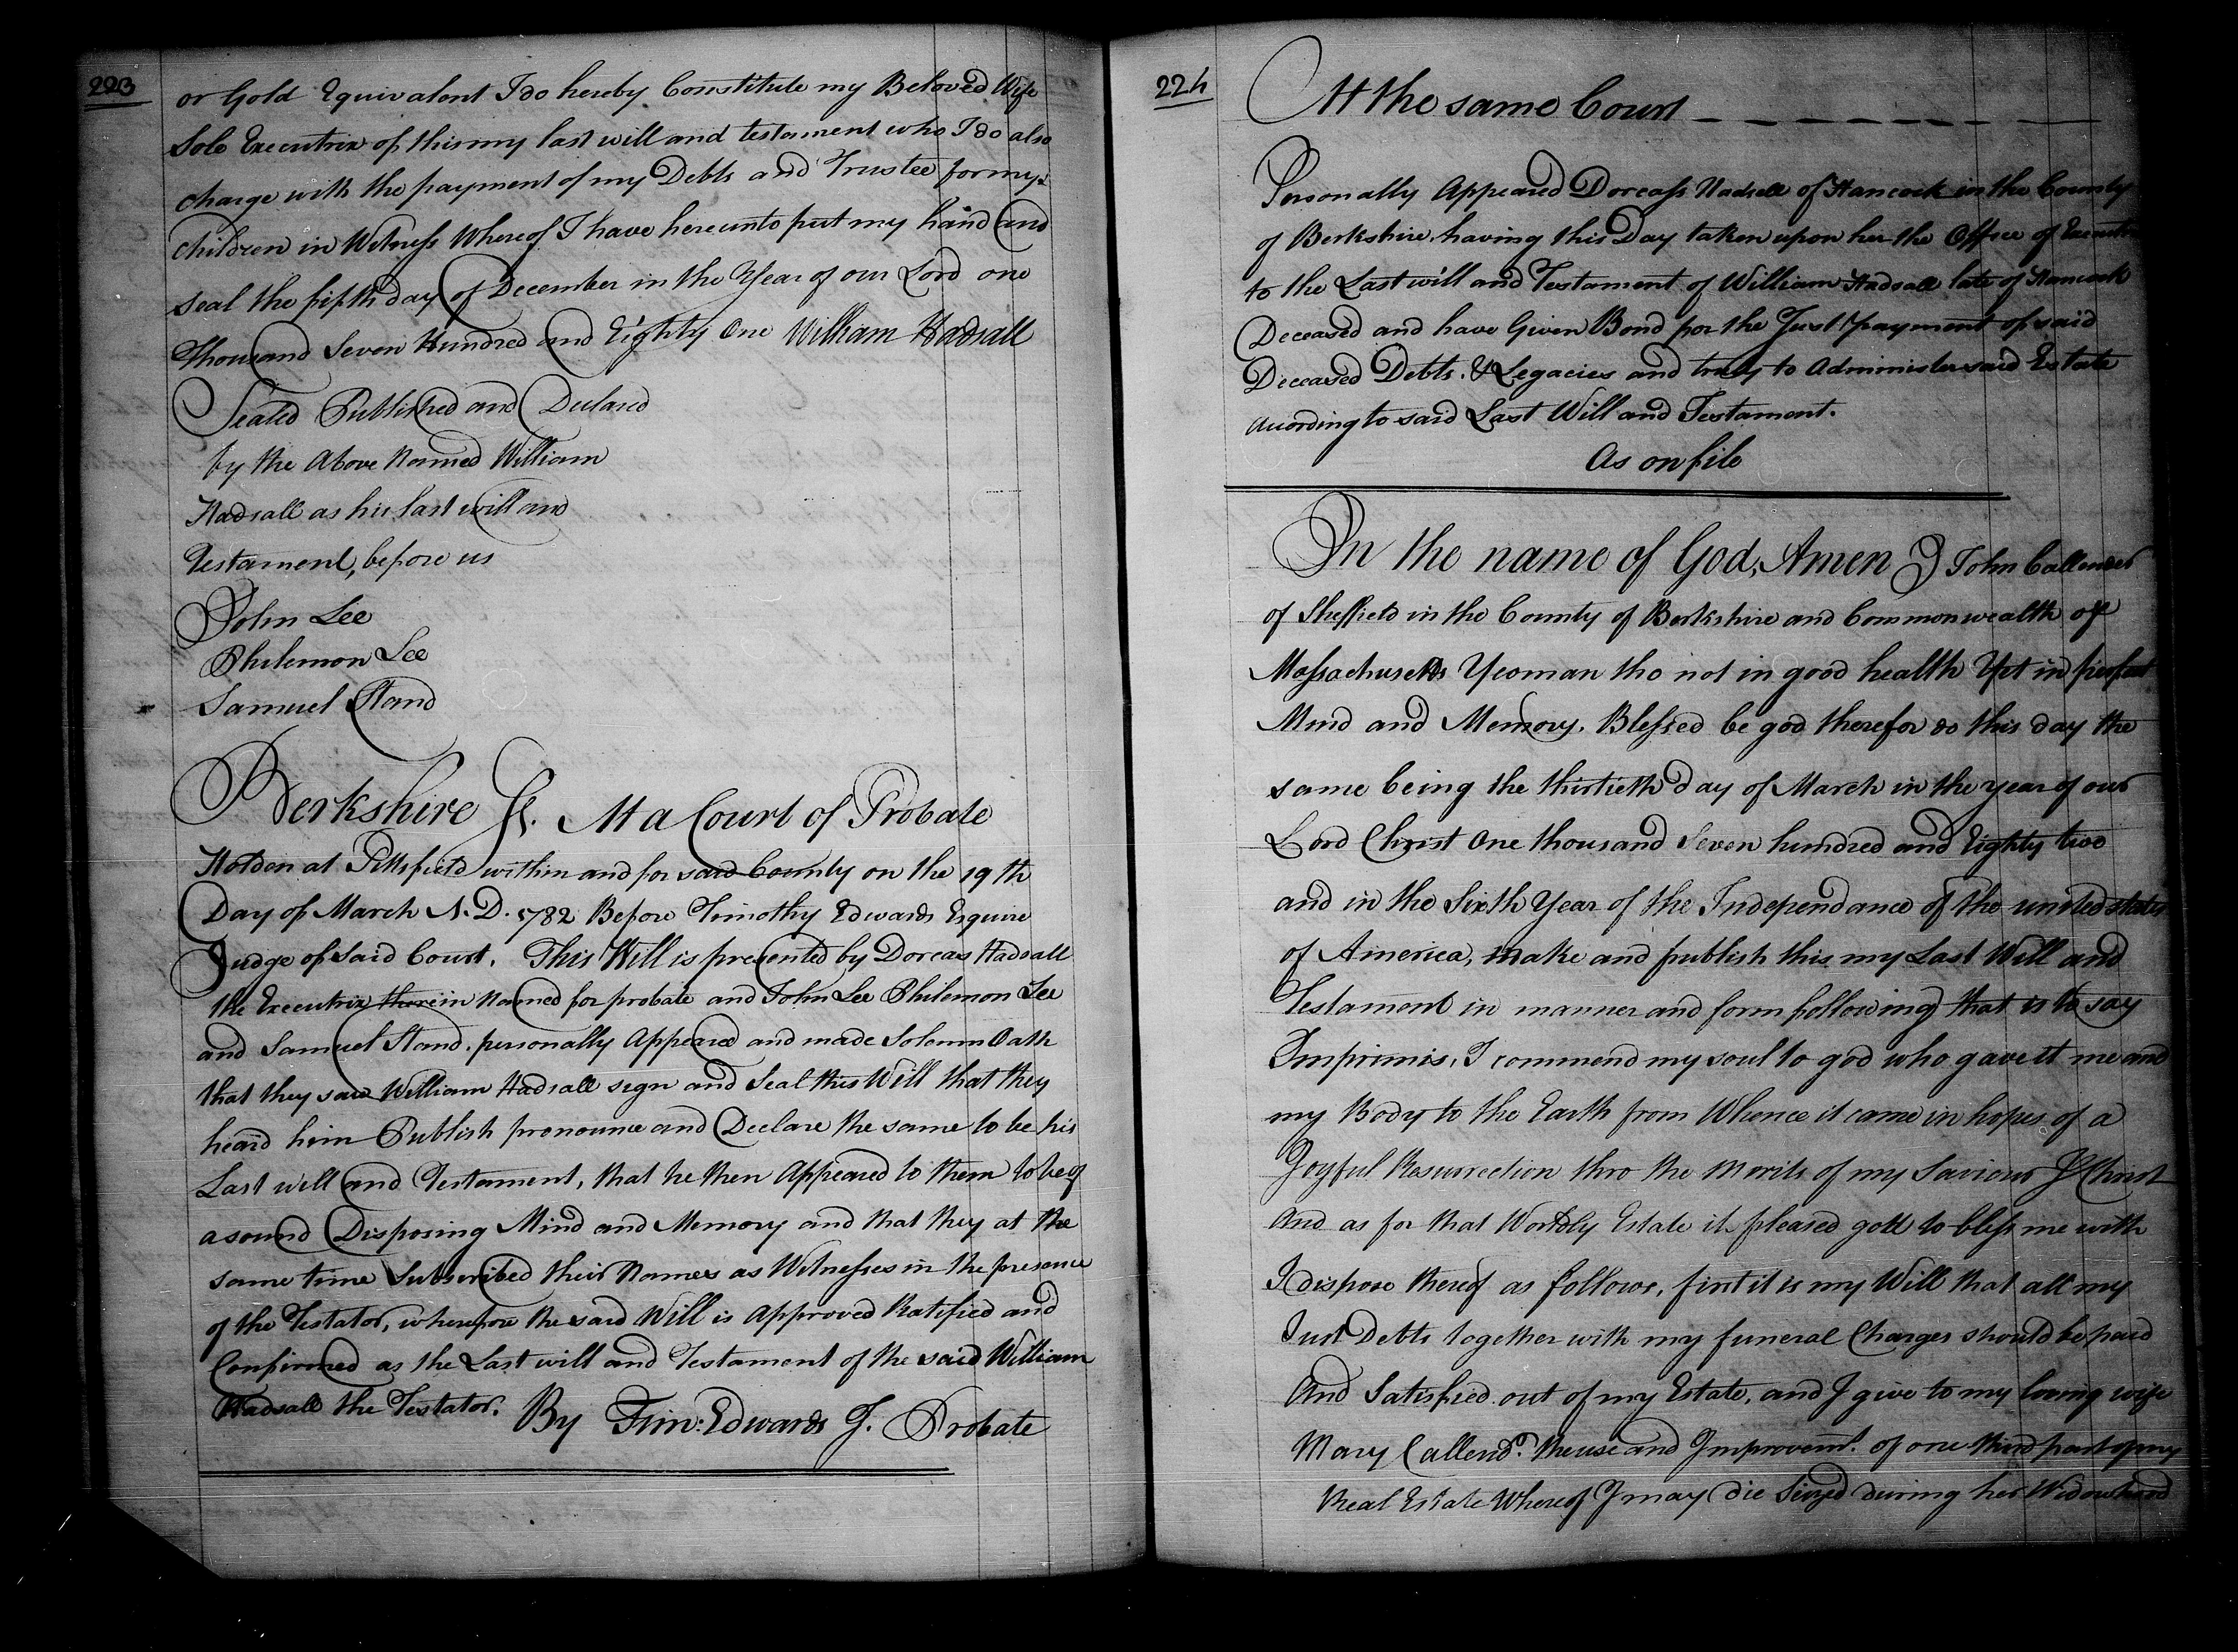 223
or Gold Equivalent I do hereby Constitute my Beloved Wife
Sole Executrix of this my last will and testament who I do also
charge with the payment of my Debts and Trustee for my
children in Witness Whereof I have hereunto put my hand and
seal the fifth day of December in the Year of our Lord one
thousand Seven Hundred and Eighty One William Hadsall
Sealed Published and Declared
by the Above Named William
Hadsall as his last will and
Testament, before us
John Lee
Philemon Lee
Samuel Hand
Berkshire Ss. At a Court of Probate
Holden at Pittsfield within and for said County on the 19th
Day of March A.D. 1782 Before Timothy Edwards Esquire
Judge of Said Court. This Will is presented by Dorcas Hadsall
the Executrix therein Named for probate and John Lee Philemon Lee
and Samuel Hand personally Appeared and made Solemn Oath
that they saw William Hadsall sign and Seal this Will that they
heard him Publish pronounce and Declare the same to be his
Last will and Testament, that he then Appeared to them to be of
a sound Disposing Mind and Memory and that they at the
same time Subscribed their Names as Witnesses in the presence
of the Testator, wherefore the said Will is Approved Ratified and
Confirmed as the Last will and Testament of the said William
Hadsall the Testator. By Tim: Edwards J. Probate
224
At the same Court
Personally Appeared Dorcass Hadsall of Hancock in the County
of Berkshire having this Day taken upon her the Office of
to the Last will and Testament of William Hadsall late of Hancock
Deceased and have Given Bond for the Just payment of said
Deceased Debts & Legacies and truly to Administer said Estate
according to said Last Will and Testament.
As on file
In the name of God, Amen I John Callender
of Sheffield in the County of Berkshire and Commonwealth of
Massachusetts Yeoman tho not in good health Yet in perfect
Mind and Memory. Blessed be god therefor do this day the
same being the thirtieth day of March in the year of our
Lord Christ One thousand Seven hundred and Eighty two
and in the Sixth Year of the Independance of the united states
of America, make and publish this my Last Will and
Testament in manner and form following that is to say
Imprimis, I commend my soul to god who gave it me and
my Body to the Earth from Whence it came in hopes of a
Joyful Resurrection thro the Merits of my Saviour J Christ
And as for that Worldly Estate it pleased god to bless me with
I dispose thereof as follows, first it is my Will that all my
Just Debts together with my funeral Charges should be paid
And Satisfied out of my Estate, and I give to my loving wife
Mary Callendr. the use and Improvemt. of one third part of my
Real Estate Whereof I may die Siezed during her Widowhood